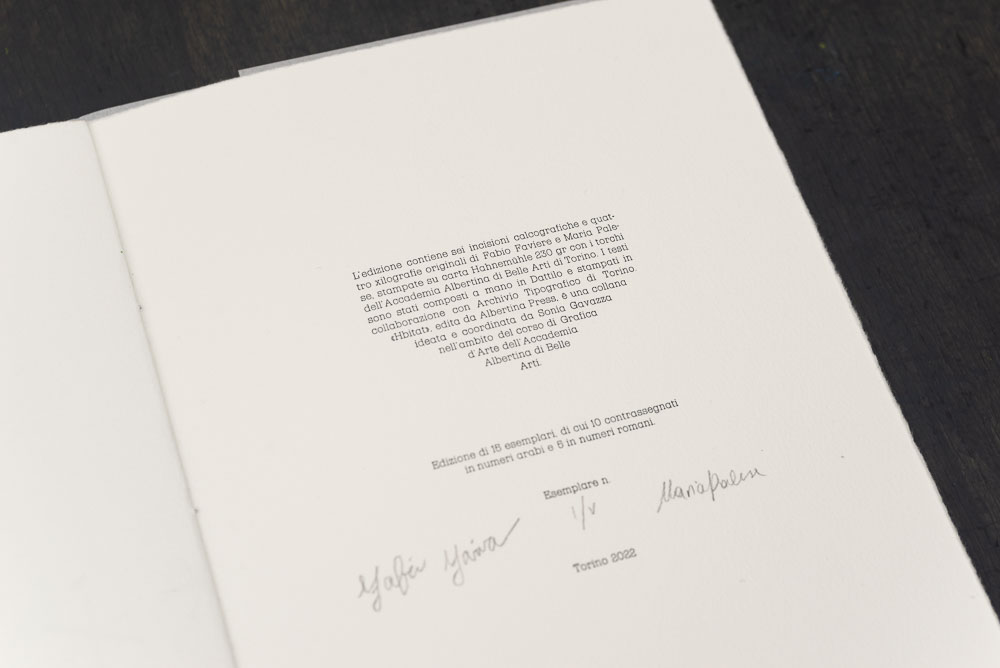 L'edizione contiene sei incisioni calcografiche e quat-
tro xilografie originali di Fabio Faviere e Maria Pale-
se, stampate su carta Hahnemühle 230 gr con i torchi
dell'Accademia Albertina di Belle Arti di Torino. I testi
sono stati composti a mano in Dattilo e stampati in
collaborazione con Archivio Tipografico di Torino.
«Hbitat», edita da Albertina Press, è una collana
ideata e coordinata da Sonia Gavazza
nell'ambito del corso di Grafica
d'Arte dell'Accademia
Albertina di Belle
Arti.
Edizione di 15 esemplari, di cui 10 contrassegnati
in numeri arabi e 5 in numeri romani.
Esemplare n.
I/V
Maria Palese
Torino 2022